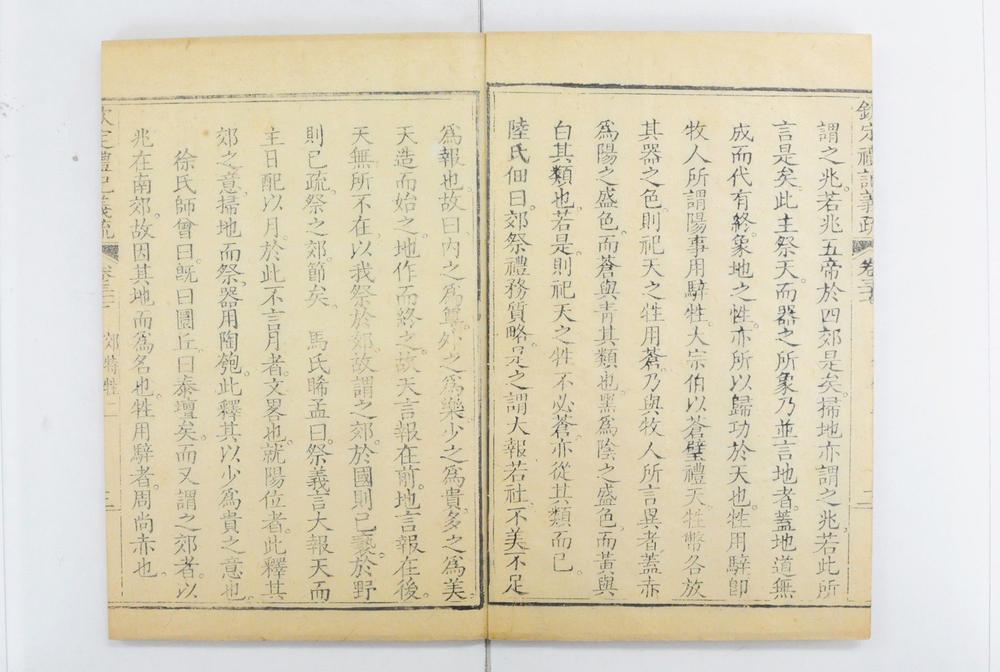 欽定禮記義疏 卷三
謂之兆若兆五帝於四郊是矣掃地亦謂之兆若此所
言是矣此主祭天而器之所象乃並言地者蓋地道無
成而代有終象地之性亦所以歸功於天也牲用騂卽
牧人所謂陽事用騂牲大宗伯以蒼璧禮天牲幣各放
其器之色則祀天之牲用蒼乃與牧人所言異者蓋亦
爲陽之盛色而蒼與青其類也黑爲陰之盛色而黃與
白其類也若是則祀天之牲不必蒼亦從其類而已
陸氏佃曰郊祭禮務質略是之謂大報若社不美不足
爲報也故曰內之爲尊外之爲樂少之爲貴多之爲美
天造而始之地作而終之故天言報在前地言報在後
天無所不在以我祭於郊故謂之郊於國則已褻於野
則已疏祭之郊節矣 馬氏睎孟曰祭義言大報天而
主日配以月於此不言月者文畧也就陽位者此釋其
郊之意掃地而祭器用陶匏此釋其以少爲貴之意也
徐氏師曾曰旣曰圜丘曰泰壇矣而又謂之郊者以
兆在南郊故因其地而爲名也牲用騂者周尚赤也
欽定禮記義疏 卷三 郊特牲 二